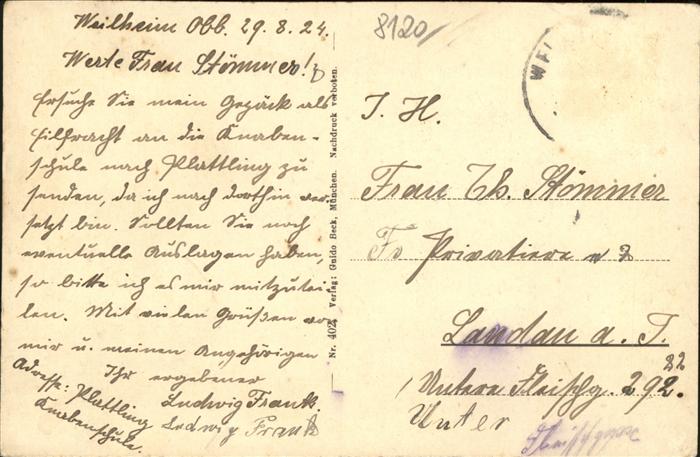 Weilheim Obb. 29.8.24.
Werte Frau Stömmer!
Ersuche Sie mein Gepäck als
Eilfracht an die Knaben-
schule nach Plattling zu
senden, da ich nach dorthin ver-
setzt bin. Sollten Sie noch
eventuelle Auslagen haben,
so bitte ich es mir mitzutei-
len. Mit vielen Grüßen von
mir u. meinen Angehörigen
Ihr ergebener
Ludwig Frank.
Adresse: Plattling
Ludwig Frank
Knabenschule.
Nr. 402 Verlag: Guido Beck, München. Nachdruck verboten.
8120
WEI
I. H.
Frau Th. Stömmer
Privatiere
Landau a. I.
22
Untere Fleischg. 292.
Unter
Fleischgasse